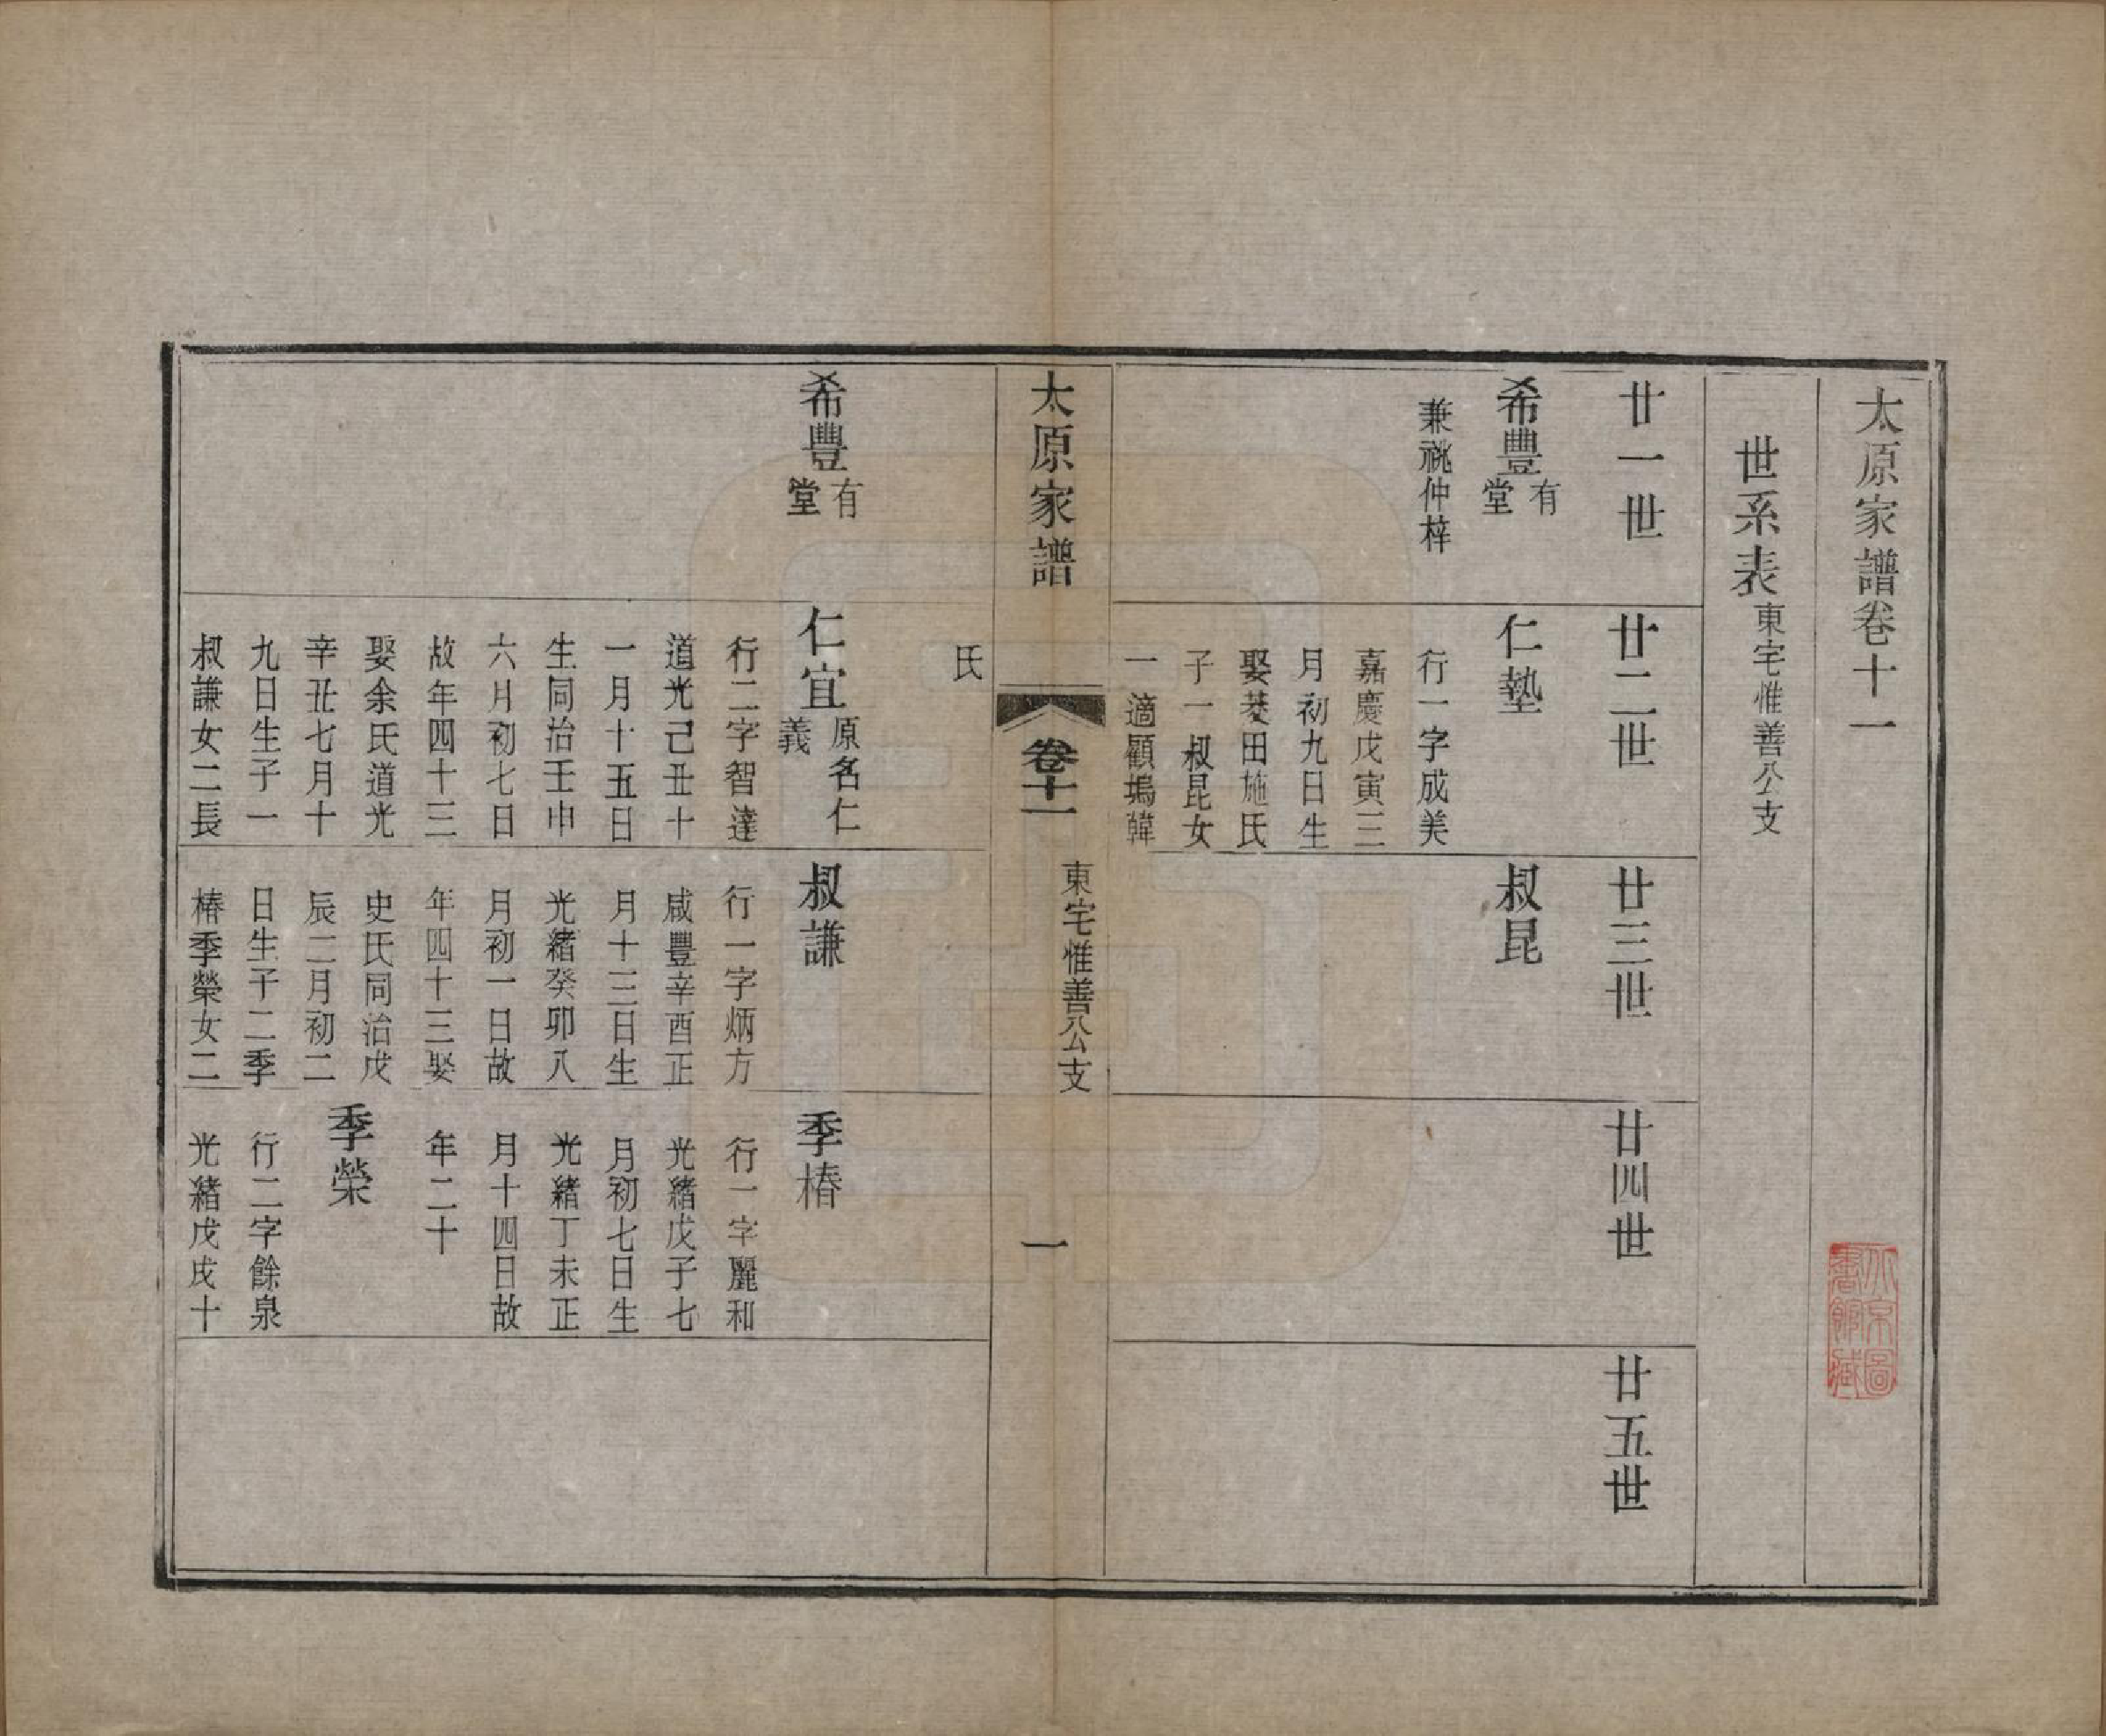 太原家譜卷十一
世系表東宅惟善公支
廿一世
廿二世
廿三世
廿四世
廿五世
希豐有堂
兼祧仲梓
仁墊
行一字成美
嘉慶戊寅三
月初九日生
娶菱田施氏
子一叔昆女
一適顧塢韓
叔昆
太原家譜
卷十一
東宅惟善公支
一
氏
希豐有堂
仁宜原名仁義
行二字智達
道光己丑十
一月十五日
生同治壬申
六月初七日
故年四十三
娶余氏道光
辛丑七月十
九日生子一
叔謙女二長
叔謙
行一字炳方
咸豐辛酉正
月十三日生
光緒癸卯八
月初一日故
年四十三娶
史氏同治戊
辰二月初二
日生子二季
椿季榮女二
季椿
行一字麗和
光緒戊子七
月初七日生
光緒丁未正
月十四日故
年二十
季榮
行二字餘泉
光緒戊戌十
北京圖
書館藏